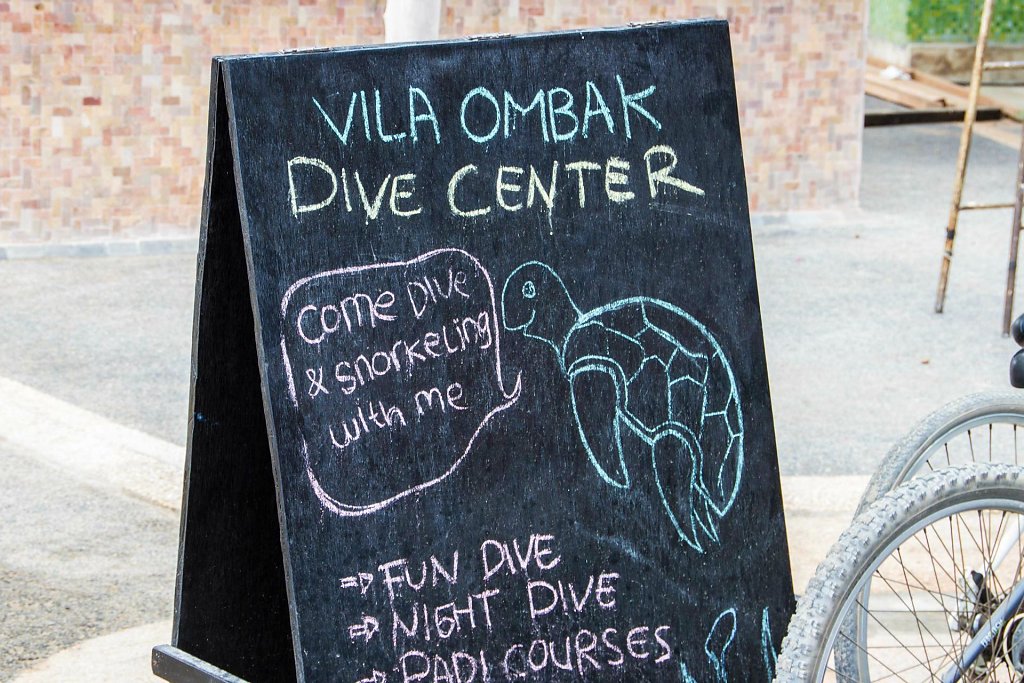 VILA OMBAK
DIVE CENTER
COME DIVE
& SNORKELING
WITH ME
⇒ FUN DIVE
⇒ NIGHT DIVE
⇒ PADI COURSES